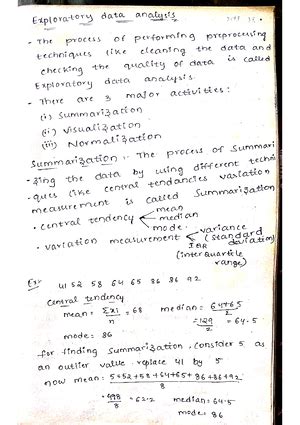 Exploratory data analysis
- The process of performing preprocessing
techniques like cleaning the data and
checking the quality of data is called
Exploratory data analysis.
- There are 3 major activities:
(i) Summarization
(ii) Visualization
(iii) Normalization
Summarization :- The process of Summari
-zing the data by using different techni
-ques like central tendancies variation
measurement is called Summarization
• central tendency mean
median
mode
• variation measurement variance
(standard
deviation)
IQR
(inter quartile
range)
Ex:- 41 52 58 64 65 86 86 92
Central tendency
mean = Σxi/n = 68 median = 64+65/2
= 129/2 = 64.5
mode = 86
for finding Summarization, Consider 5 as
an outlier value replace 41 by 5
now mean = 5+52+58+64+65+86+86+92/8
= 498/8 = 62.2 median = 64.5
mode = 86